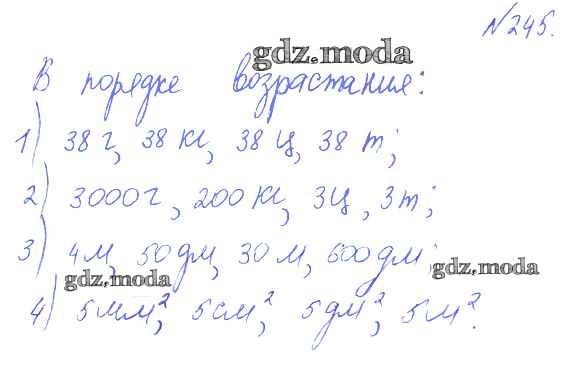 №245.
gdz.moda
В порядке возрастания:
1) 38 г, 38 кг, 38 ц, 38 т;
2) 3000 г, 200 кг, 3 ц, 3 т;
3) 4 м, 50 дм, 30 м, 600 дм;
gdz.moda
gdz.moda
4) 5 мм², 5 см², 5 дм², 5 м².